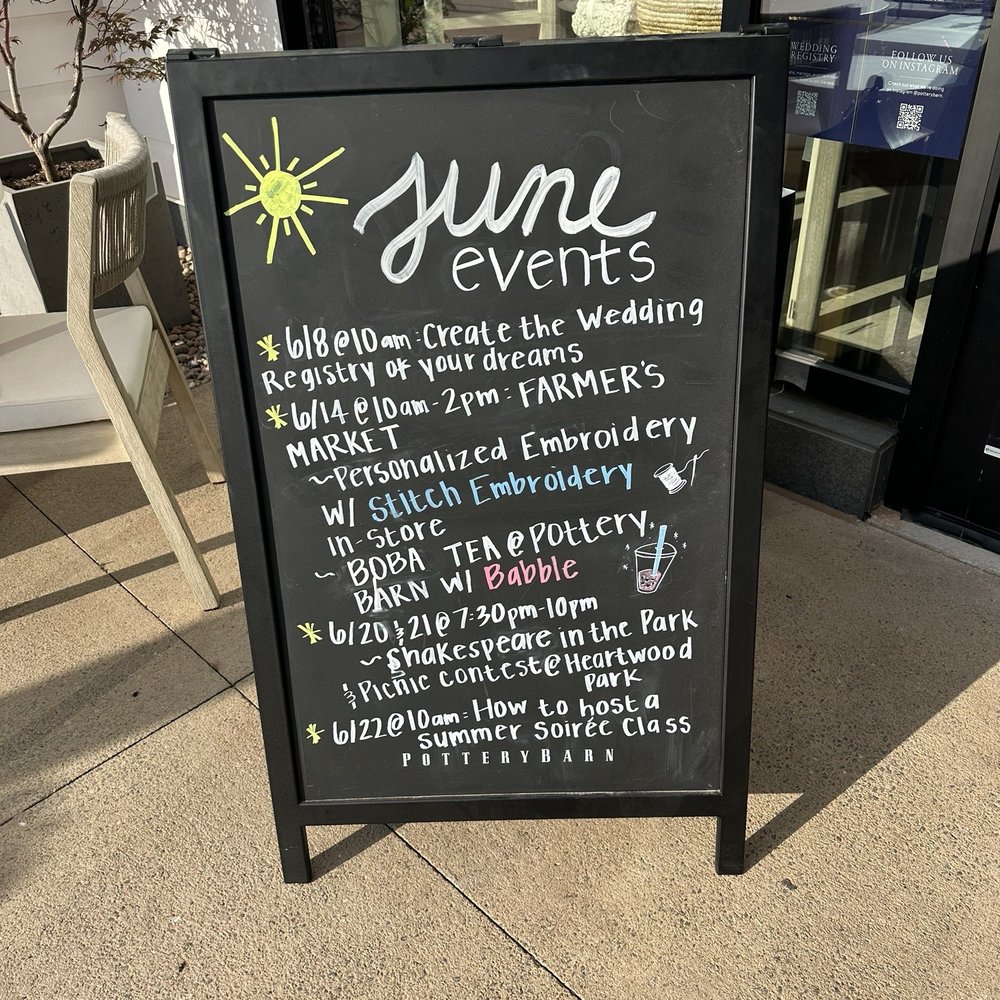 june
events
6/8@10am: Create the Wedding
Registry of your dreams
6/14@10am-2pm: FARMER'S
MARKET
~Personalized Embroidery
W/ Stitch Embroidery
In-Store
~ BOBA TEA @ Pottery
BARN W/ Babble
6/20 & 21@7:30pm-10pm
~Shakespeare in the Park
& Picnic contest@Heartwood
Park
6/22@10am: How to host a
Summer Soirée Class
POTTERYBARN
WEDDING
REGISTRY
FOLLOW US
ON INSTAGRAM
Check out what we're doing
on Instagram @potterybarn.